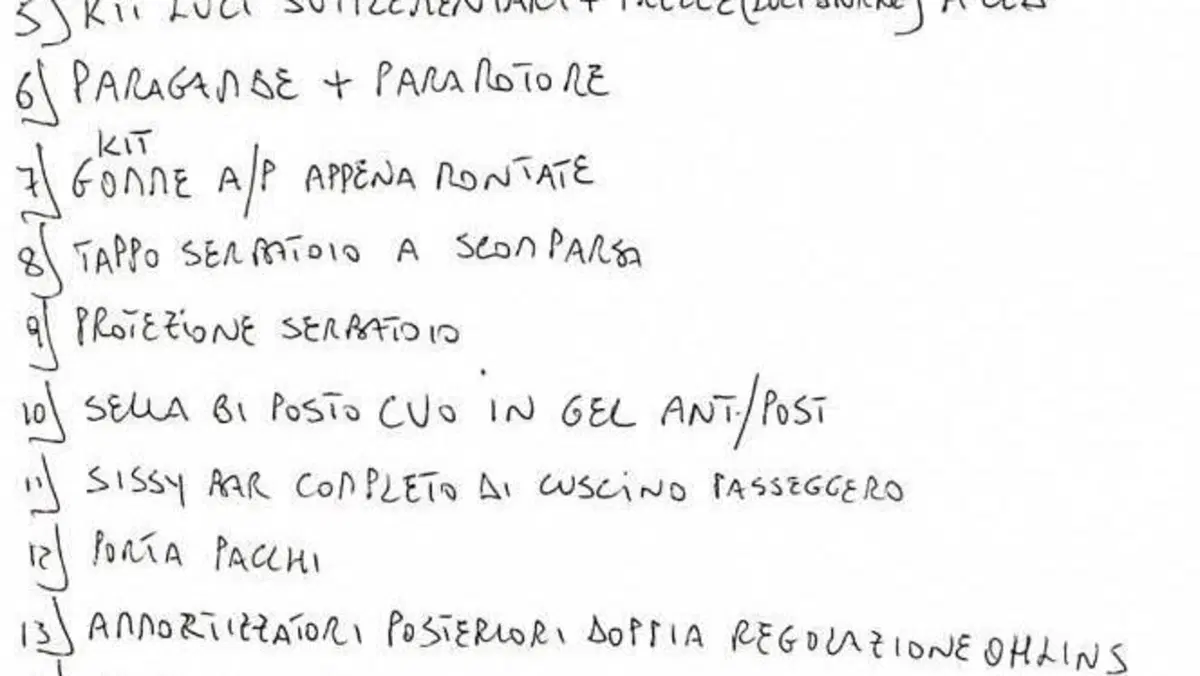 5) KIT LUCI SUPPLEMENTARI + FRECCE (LUCI DIURNE) A LED
6) PARAGAMBE + PARAMOTORE
KIT
7) GOMME A/P APPENA MONTATE
8) TAPPO SERBATOIO A SCOMPARSA
9) PROTEZIONE SERBATOIO
10) SELLA BI POSTO CUO IN GEL ANT./POST
11) SISSY BAR COMPLETO DI CUSCINO PASSEGGERO
12) PORTA PACCHI
13) AMMORTIZZATORI POSTERIORI DOPPIA REGOLAZIONE OHLINS